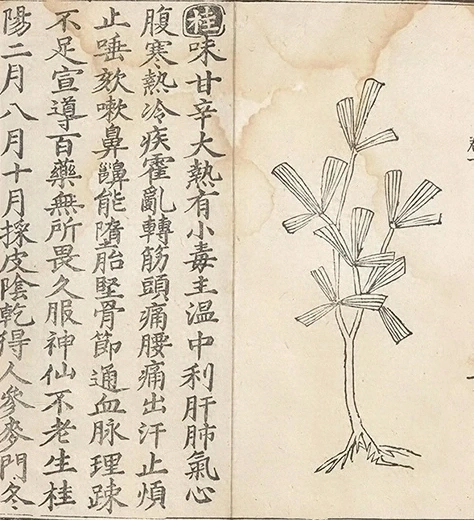 桂味甘辛大熱有小毒主溫中利肝肺氣心
腹寒熱冷疾霍亂轉筋頭痛腰痛出汗止煩
止唾欬嗽鼻齆能墮胎堅骨節通血脉理踈
不足宣導百藥無所畏久服神仙不老生桂
陽二月八月十月採皮陰乾得人參麥門冬